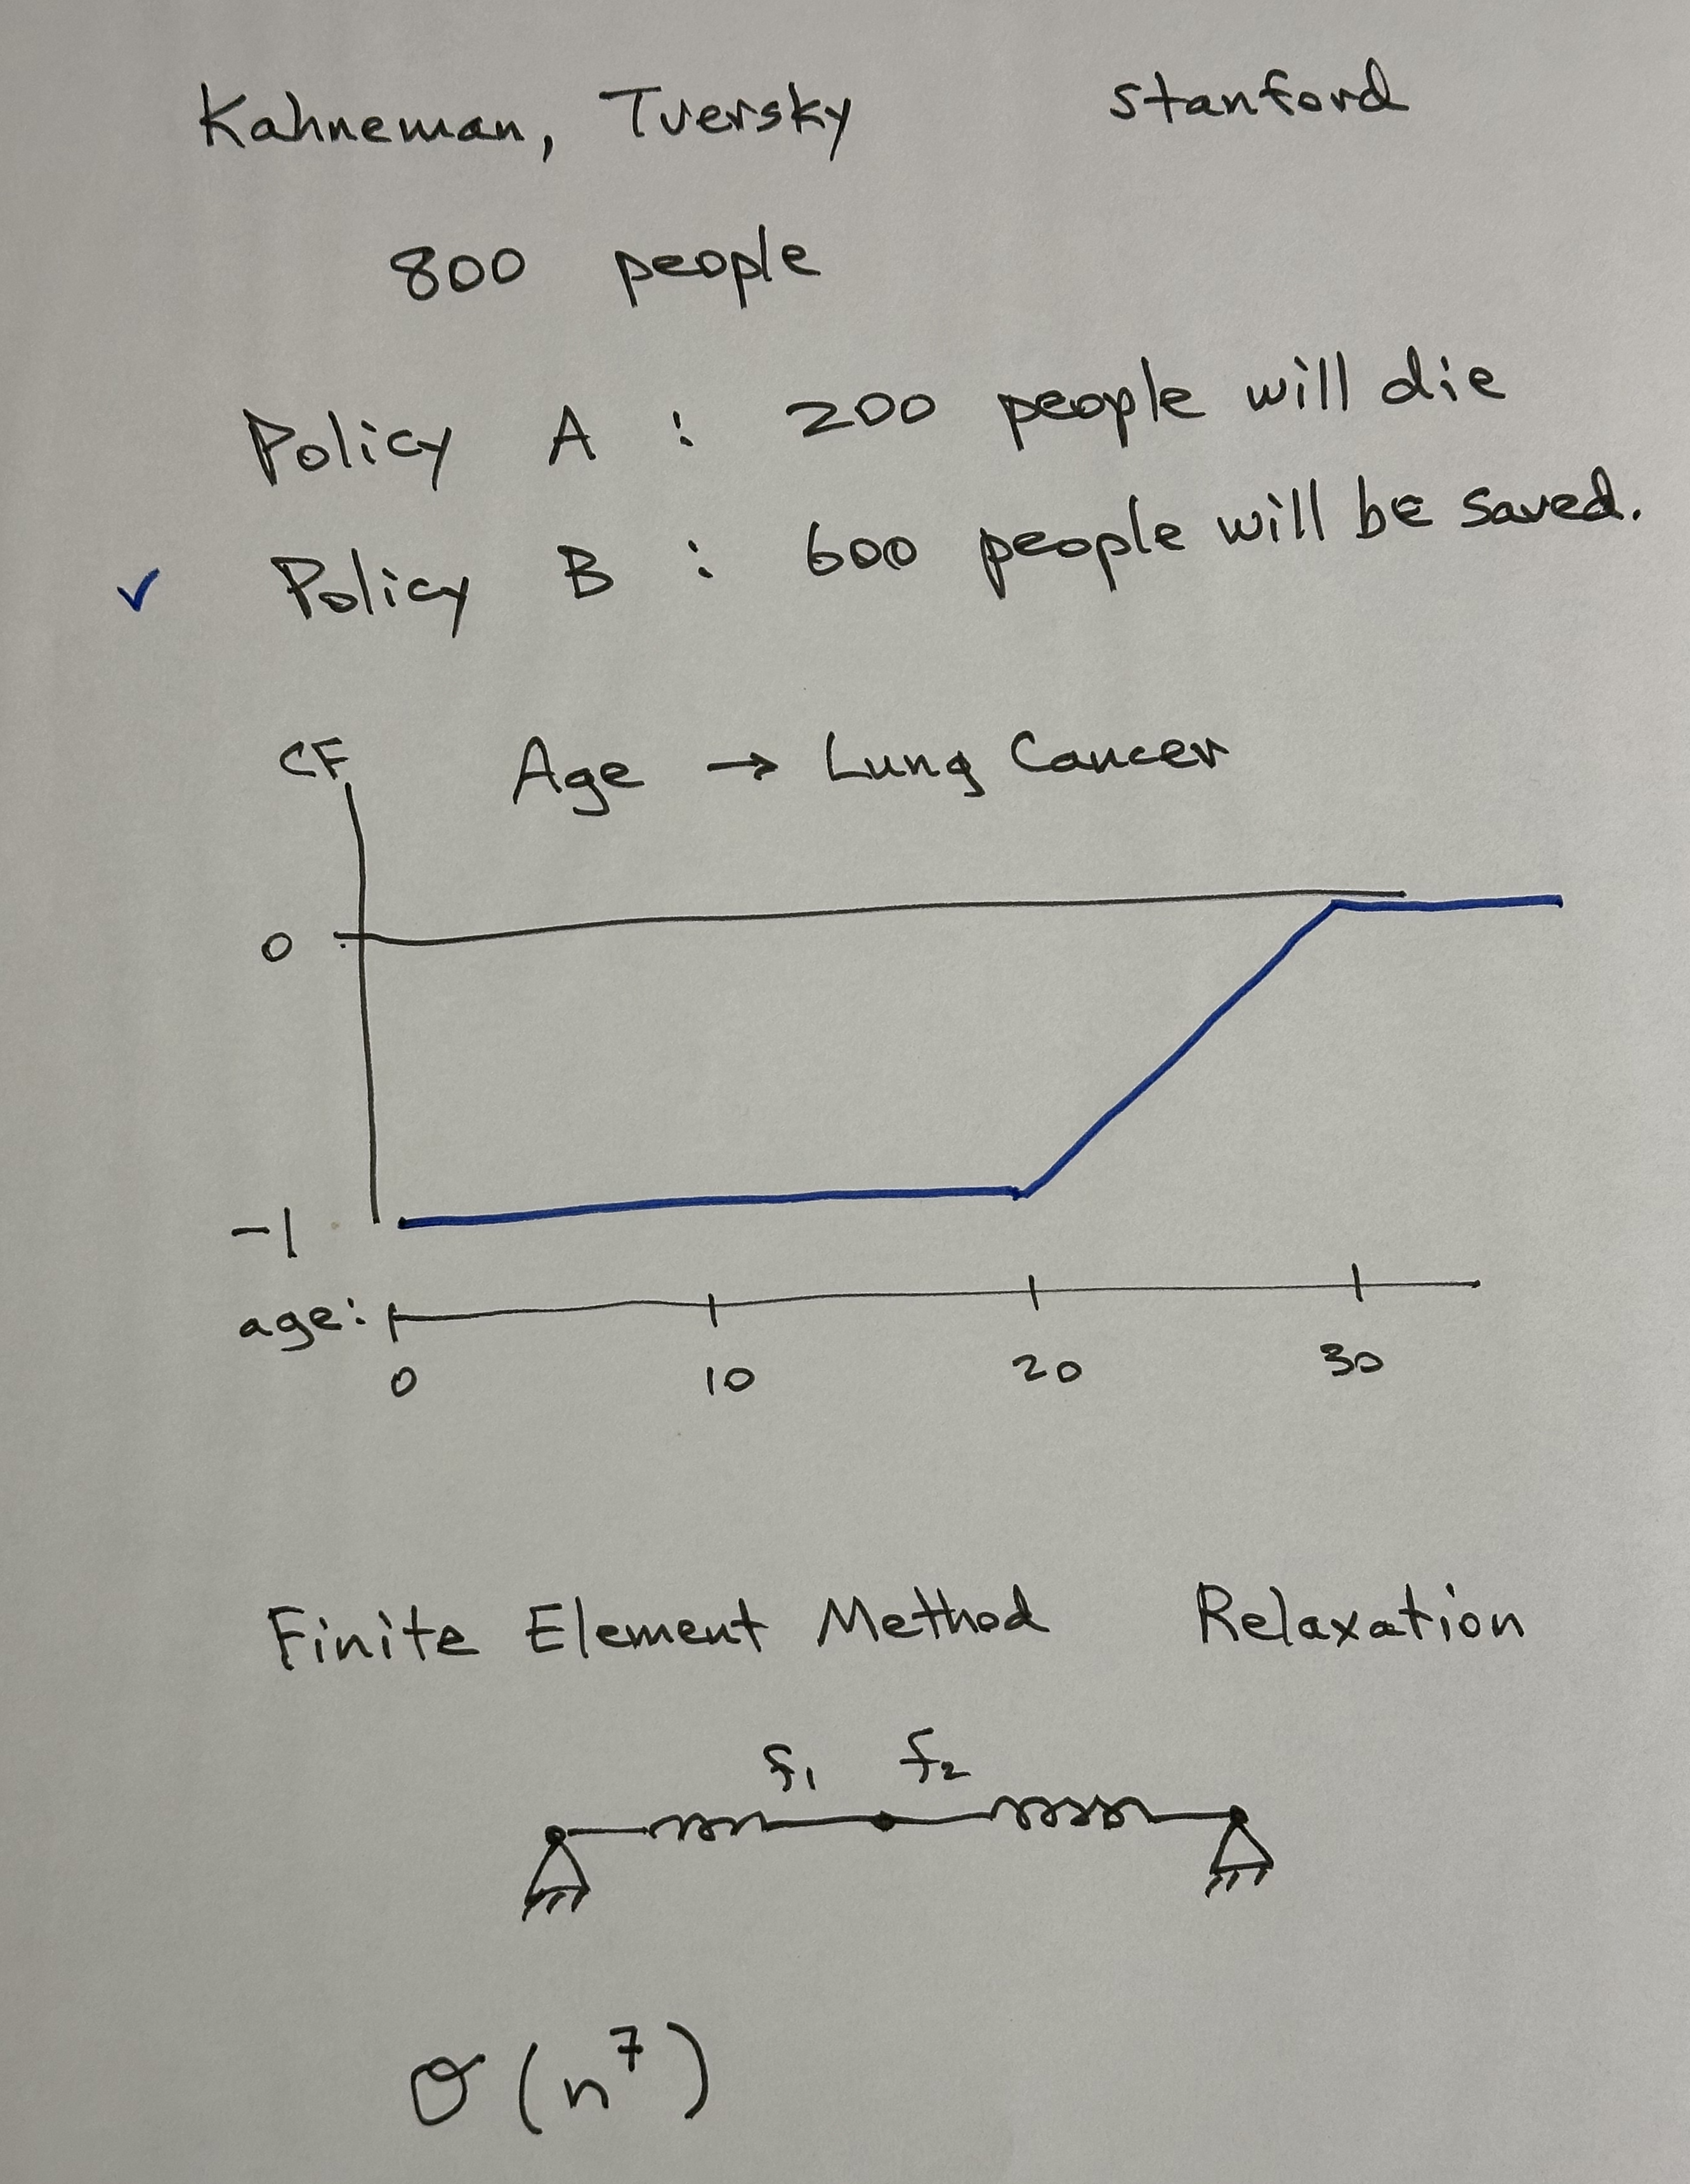 Kahneman, Tversky Stanford
800 people
Policy A : 200 people will die
✓ Policy B : 600 people will be saved.
CF Age → Lung Cancer
0
-1
age:
0 10 20 30
Finite Element Method Relaxation
f₁ f₂
O(n⁷)